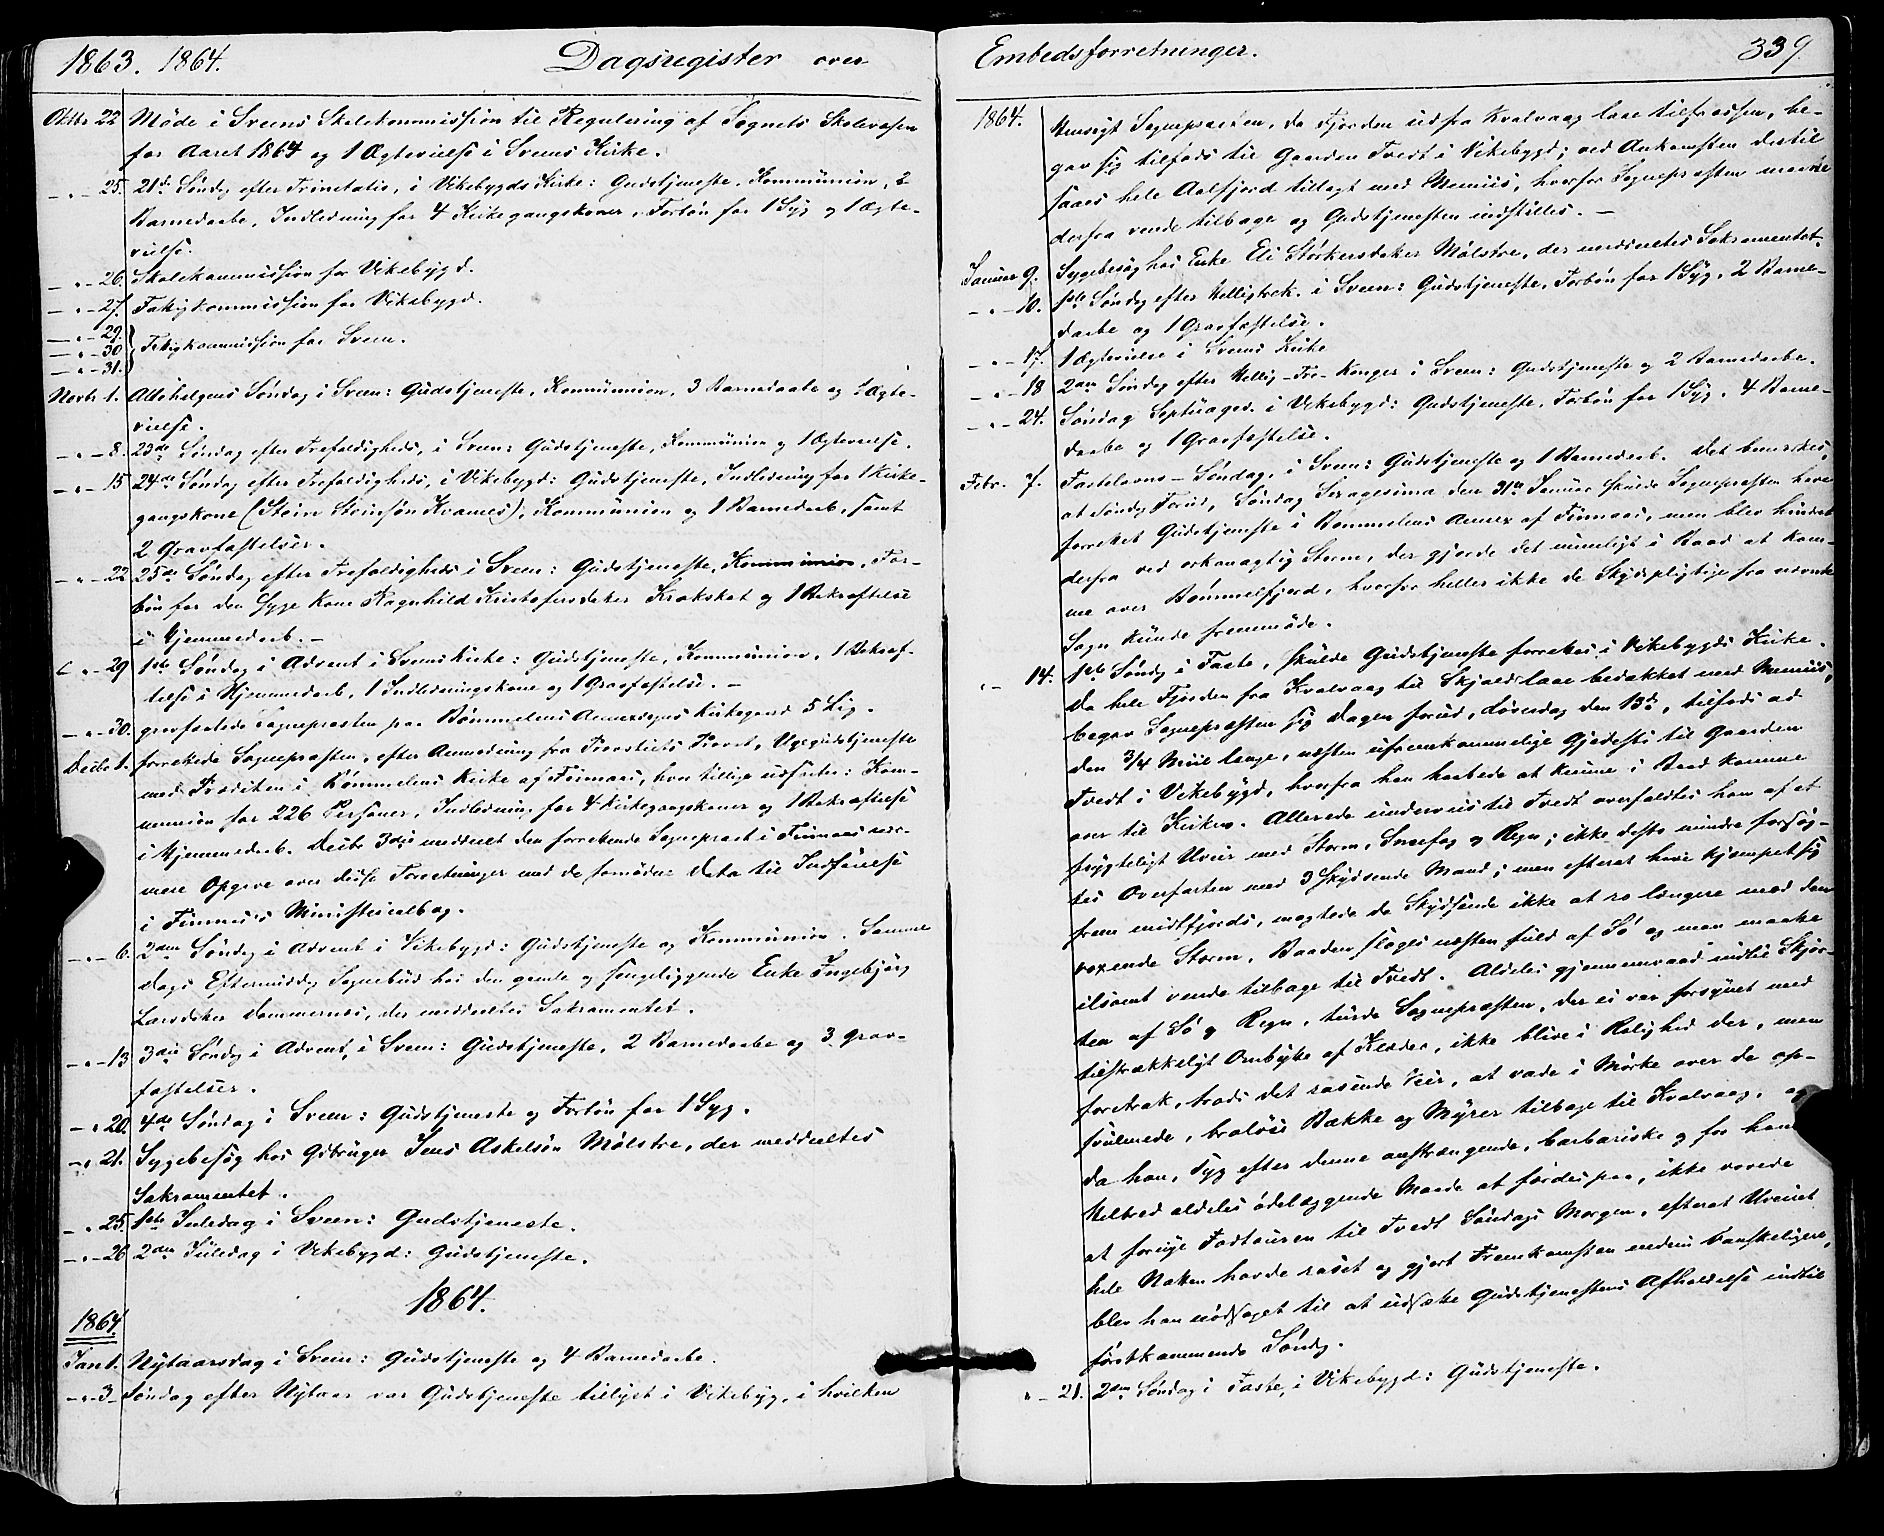 1863. 1864. Dagsregister over
Oktbr 22 Møde i Sveens Skolekommission til Regulering af Sognets Skolevæsen
for Aaret 1864 og 1 Ægtevielse i Sveens Kirke.
— " — 25. 21de Søndag efter Trinitatis, i Vikebygds Kirke: Gudstjeneste, Kommunion, 2
Barnedaabe, Indledning for 4 Kirkegangskoner, Forbøn for 1 Syg og 1 Ægte-
vielse.
— " — 26. Skolekommission for Vikebygd.
— " — 27. Fattigkommission for Vikebygd.
— " — 29.
— " — 30 Fattigkommission for Sveen.
— " — 31.
Novbr 1. Allehelgens Søndag i Sveen: Gudstjeneste, Kommunion, 3 Barnedaabe og 1 Ægte-
vielse.
— " — 8. 23de Søndag efter Trefoldigheds, i Sveen: Gudstjeneste, Kommunion og 1 Ægtevielse.
— " — 15 24de Søndag efter Trefoldigheds, i Vikebygd: Gudstjeneste, Indledning for 1 Kirke-
gangskone (Stein Steinsøn Kvames), Kommunion og 1 Barnedaab, samt
2 Gravfæstelser.
— " — 22 25de Søndag efter Trefoldigheds i Sveen: Gudstjeneste, Kommunion, For-
bøn for den syge Kone Ragnhild Kristofersdatter Krokskot og 1 Bekræftelse
i Hjemmedaab. —
— " — 29 1ste Søndag i Advent i Sveens Kirke: Gudstjeneste, Kommunion, 1 Bekræf-
telse i Hjemmedaab, 1 Indledningskone og 1 Gravfæstelse. —
— " — 30. gravfæstede Sognepræsten paa Bømmelens Annexsogns Kirkegaard 5 Lig.
Decbr 1. forrettede Sognepræsten, efter Anmodning fra Provstiets Provst, Ugegudstjeneste
med Prædiken i Bømmelens Kirke af Finnaas, hvor tillige udførtes: Kom-
munion for 226 Personer, Indledning for 4 Kirkegangskoner og 1 Bekræftelse
i Hjemmedaab. Decbr 3die meddeelt den forrettende Sognepræst i Finnaas nær-
mere Opgave over disse Forretninger med de fornødne Data til Indførelse
i Finnaas Ministerialbog.
— " — 6. 2den Søndag i Advent i Vikebygd: Gudstjeneste og Kommunion. Samme
Dags Eftermiddag Sognebud hos den gamle og sengeliggende Enke Ingebjørg
Larsdatter Dommersnes, der meddeeltes Sakramentet.
— " — 13 3die Søndag i Advent, i Sveen: Gudstjeneste, 2 Barnedaabe og 3 Grav-
fæstelser.
— " 20. 4de Søndag i Sveen: Gudstjeneste og Forbøn for 1 Syg.
— " 21. Sygebesøg hos Gbruger Jens Askelsøn Mølstre, der meddeeltes
Sakramentet.
— " 25. 1ste Juledag i Sveen: Gudstjeneste.
— " — 26 2den Juledag i Vikebygd: Gudstjeneste.
1864.
1864
Jan 1. Nytaarsdag i Sveen: Gudstjeneste og 4 Barnedaabe.
— " — 3 Søndag efter Nytaar var Gudstjeneste tillyst i Vikebyg, i hvilken
Embedsforretninger. 339.
1864. Hensigt Sognepræsten, da Fjorden udfra Kvalvaag laae tilfrossen, be-
gav sig tilfods til Gaarden Tvedt i Vikebygd; ved Ankomsten dertil
saaes hele Aalfjord tillagt med Meniis, hvorfor Sognepræsten maatte
derfra vende tilbage og Gudstjenesten indstilles. —
Januar 9. Sygebesøg hos Enke Eli Størkersdatter Mølstre, der meddeeltes Sakramentet.
— " — 10. 1ste Søndag efter Helligtrek. i Sveen: Gudstjeneste, Forbøn for 1 Syg, 2 Barne-
daabe og 1 Gravfæstelse.
— " — 17. 1 Ægtevielse i Sveens Kirke
— " — 18 2den Søndag efter Hellig-Tre-Konger i Sveen: Gudstjeneste og 2 Barnedaabe.
— " — 24. Søndag Septuages. i Vikebygd: Gudstjeneste, Forbøn for 1 Syg, 4 Barne-
daabe og 1 Gravfæstelse.
Febr. 7. Fastelavns-Søndag, i Sveen: Gudstjeneste og 1 Barnedaab. Det bemærkes,
at Søndag forud, Søndag Sexagesima den 31te Januar skulde Sognepræsten have
forrettet Gudstjeneste i Bømmelens Annex af Finnaas, men blev hindret
derfra ved orkanagtig Storm, der gjorde det umueligt i Baad at kom-
me over Bømmelfjord, hvorfor heller ikke de Skydspligtige fra nævnte
Sogn kunde fremmøde.
" — 14. 1ste Søndag i Faste, skulde Gudstjeneste forrettes i Vikebygds Kirke.
Da hele Fjorden fra Kvalvaag til Skjold laae bedækket med Meniis,
begav Sognepræsten sig Dagen forud, Løverdag den 13de, tilfods ad
den 3/4 Miil lange, næsten ufremkommelige Gjedesti til Gaarden
Tvedt i Vikebygd, hvorfra han haabede at kunne i Baad komme
over til Kirken. Allerede underveis til Tvedt overfaldtes han af et
frygteligt Uveir med Storm, Sneefog og Regn; ikke desto mindre forsøg-
tes Overfarten med 3 skydsende Mænd; men efterat have kjæmpet sig
frem midtfjords, magtede de Skydsende ikke at ro længere mod den
voxende Storm, Baaden sloges næsten fuld af Sø og man maatte
ilsomt vende tilbage til Tvedt. Aldeles gjennemvaad indtil Skjor-
ten af Sø og Regn, turde Sognepræsten, der ei var forsynet med
tilstrækkeligt Ombytte af Klæder, ikke blive i Rolighed der, men
foretrak, trods det rasende Veir, at vade i Mørke over de op-
svulmede, broløse Bække og Myrer tilbage til Kvalvaag, og
da han, syg efter denne anstrængende, barbariske og for hans
Helbred aldeles ødelæggende Maade at færdes paa, ikke vovede
at fornye Fodtouren til Tvedt Søndags Morgen, efterat Uveiret
hele Natten havde raset og gjort Fremkomsten endnu vanskeligere,
blev han nødsaget til at udsætte Gudstjenestens Afholdelse indtil
førstkommende Søndag.
" — 21. 2den Søndag i Faste, i Vikebygd: Gudstjeneste.